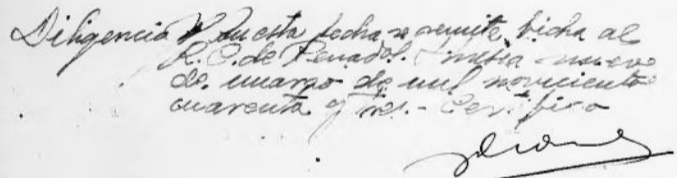 Diligencia En esta fecha se remite ficha al
R. C. de Penados. nueve
de marzo de mil novecientos
cuarenta y tres.- Certifico